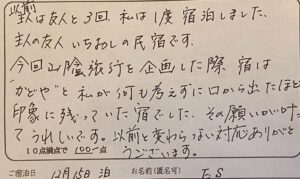 以前
主人は友人と3回、私は1度宿泊しました。
主人の友人いちおしの民宿です。
今回山陰旅行を企画した際、宿は
"かどや"と私が何も考えずに口から出たほど
印象に残っていた宿でした。その願いがかなっ
てうれしいです。以前と変わらない対応ありがと
うございます。
10点満点で 100 点
ご宿泊日 12月15日泊 お名前(匿名可) F.S